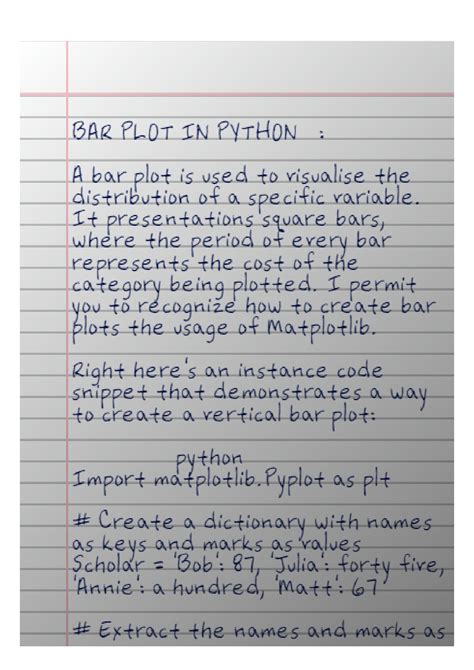 BAR PLOT IN PYTHON :
A bar plot is used to visualise the
distribution of a specific variable.
It presentations square bars,
where the period of every bar
represents the cost of the
category being plotted. I permit
you to recognize how to create bar
plots the usage of Matplotlib.
Right here's an instance code
snippet that demonstrates a way
to create a vertical bar plot:
python
Import matplotlib.Pyplot as plt
# Create a dictionary with names
as keys and marks as values
Scholar = 'Bob': 87, 'Julia': forty five,
'Annie': a hundred, 'Matt': 67
# Extract the names and marks as